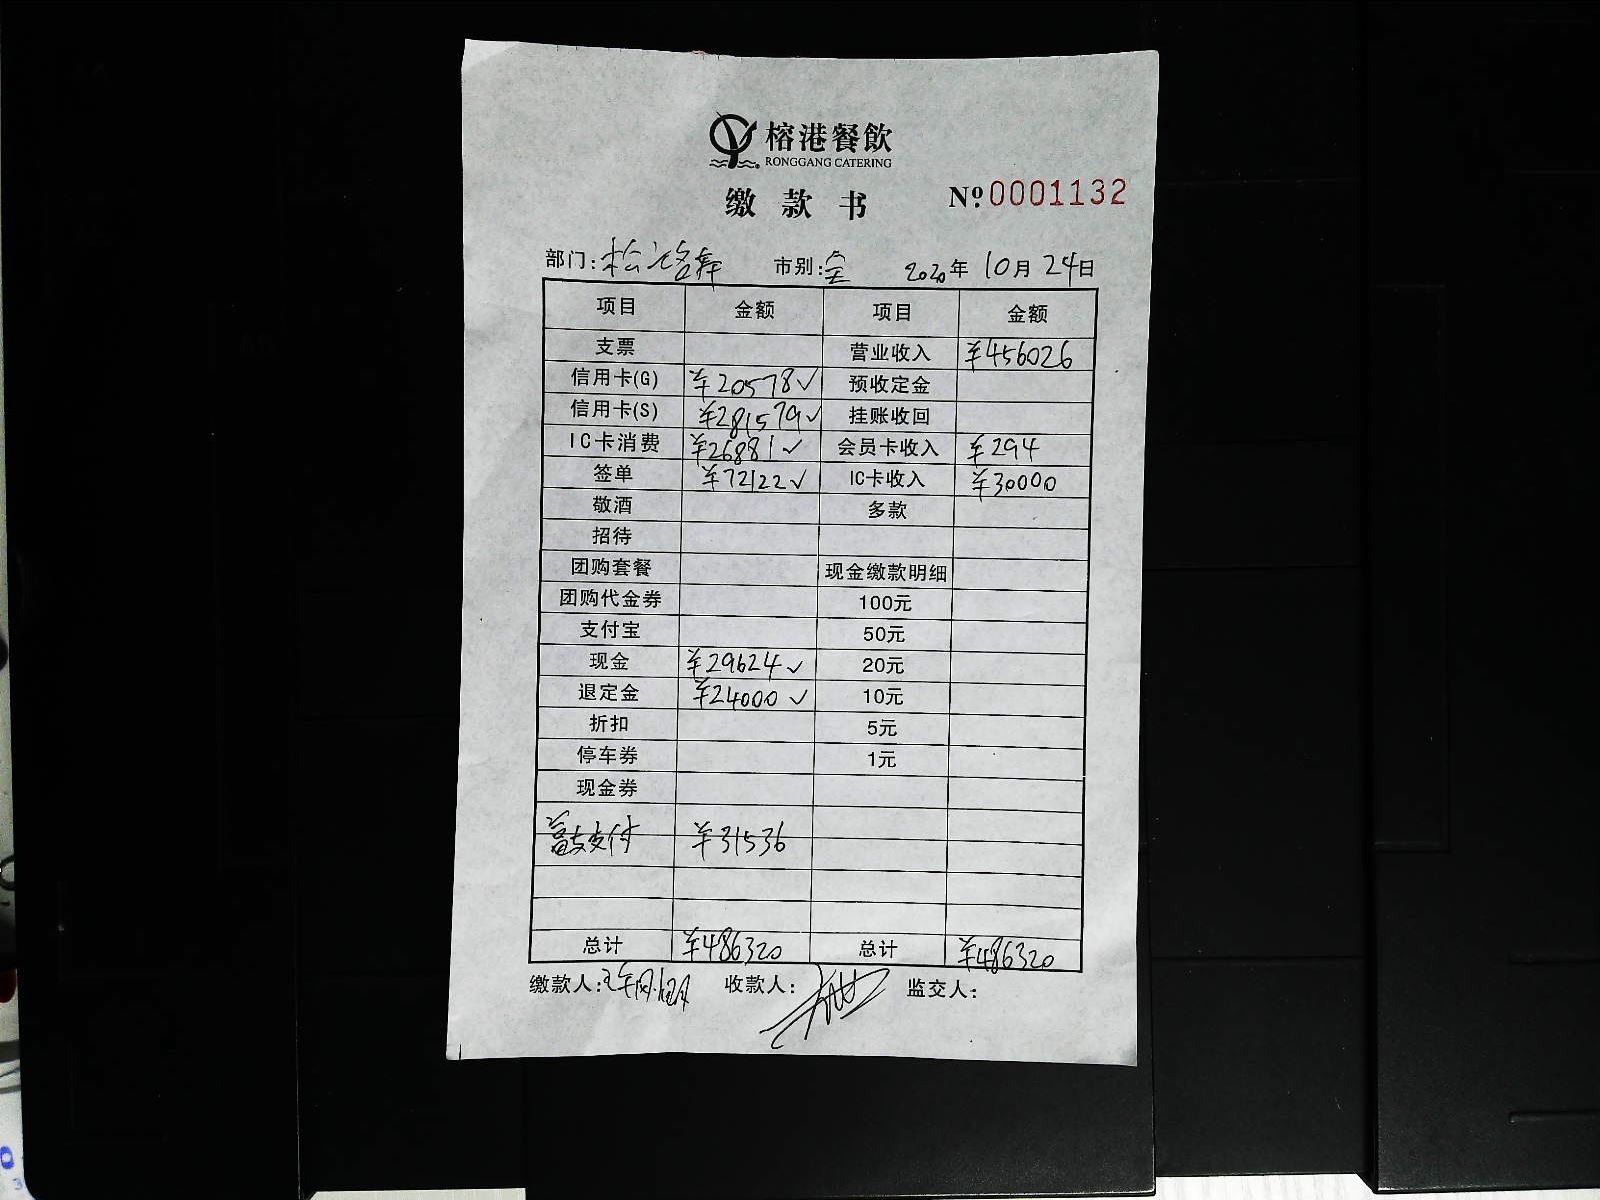 榕港餐飲
RONGGANG CATERING
缴款书 №0001132
部门: 市别:全 2020年 10月 24日
项目 金额 项目 金额
支票 营业收入 ¥456026
信用卡(G) ¥20578✓ 预收定金
信用卡(S) ¥281579✓ 挂账收回
IC卡消费 ¥26881✓ 会员卡收入 ¥294
签单 ¥72122✓ IC卡收入 ¥30000
敬酒 多款
招待
团购套餐 现金缴款明细
团购代金券 100元
支付宝 50元
现金 ¥29624✓ 20元
退定金 ¥24000✓ 10元
折扣 5元
停车券 1元
现金券
富友支付 ¥31536
总计 ¥486320 总计 ¥486320
缴款人: 收款人: 监交人: